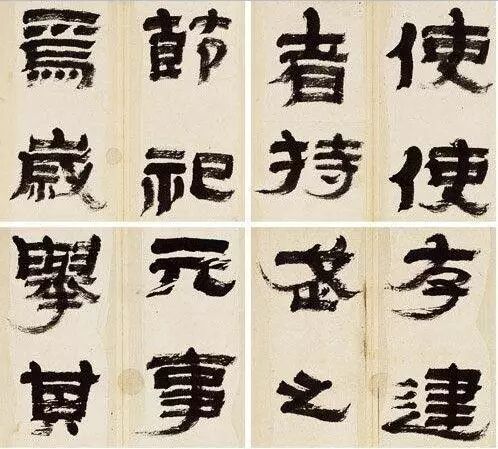 使使
者持
節祀
焉歲
存建
武之
元事
舉其